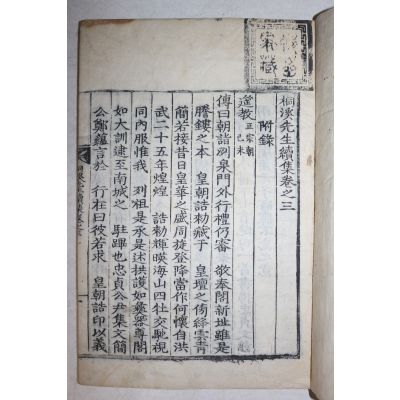 桐溪先生續集卷之三
附錄
筵教 正宗朝己未
傳曰朝詣永泉門外行禮仍審 敬奉閣新址雖是
謄鏤之本 皇朝誥勅藏于 皇壇之傍絳雲靑
簡若接昔日皇華之盛周旋登降當作何懷自洪
武二十五年煌煌 誥勅輝暎海山四牡交馳視
同內服惟我 列祖是承是述拱護如彝器尊閣
如大訓逮至南城之 駐蹕也忠貞公尹集文簡
公鄭蘊言於 行在曰彼若求 皇朝誥印以義